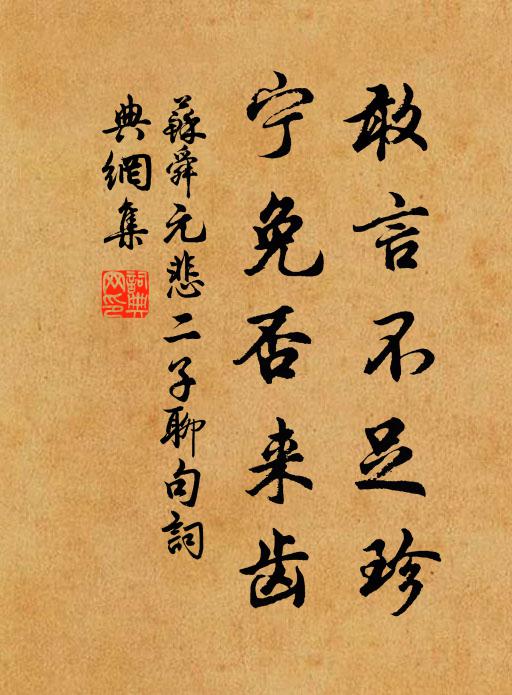 敢言不足珍
宁免否来齿
蘇舜元悲二子聊句詞
典網集
詞典
网印